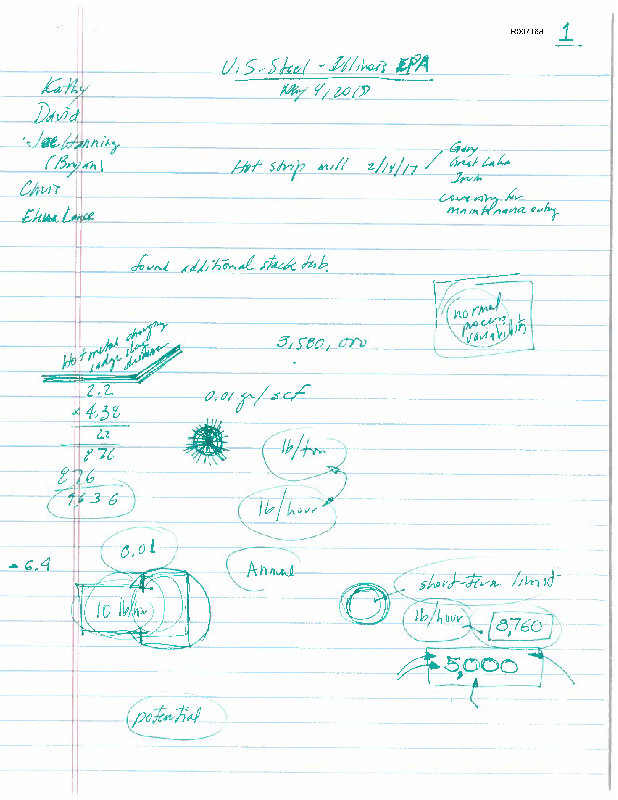 1
U.S. Steel - Illinois EPA
May 4, 2018
Kathy
David
Joe Hanning
(Bryan)
Chris
Lance
Hot strip mill 2/14/17
Gary
Great Lakes
covering for
maintenance outage
found additional stack test.
normal
process
variability
Hot metal charging
ladle slag
3,580,000
2.2
x 4.38
0.01 gr/scf
22
876
876
9636
lb/ton
lb/hour
0.01
- 6.4
Annual
10 lb/hr
short-term limit
lb/hour
8,760
5,000
potential